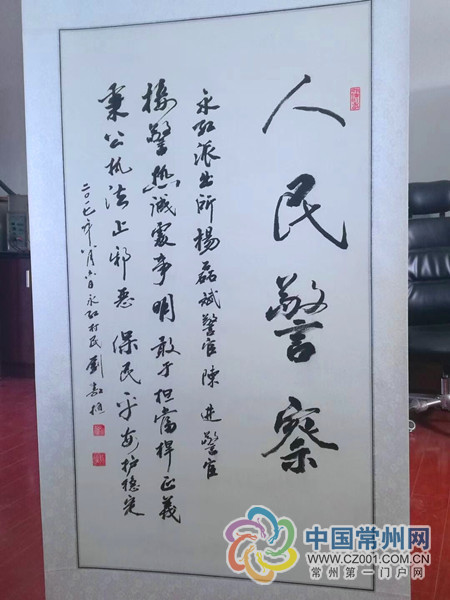 人民警察
永红派出所楊磊斌警官陳进警官
接警热诚處事明敢于担當捍正義
秉公执法止邪恶保民平安护稳定
二〇一七年八月六日永红村民劉
中国常州网
WWW.CZ001.COM.CN
常州第一门户网